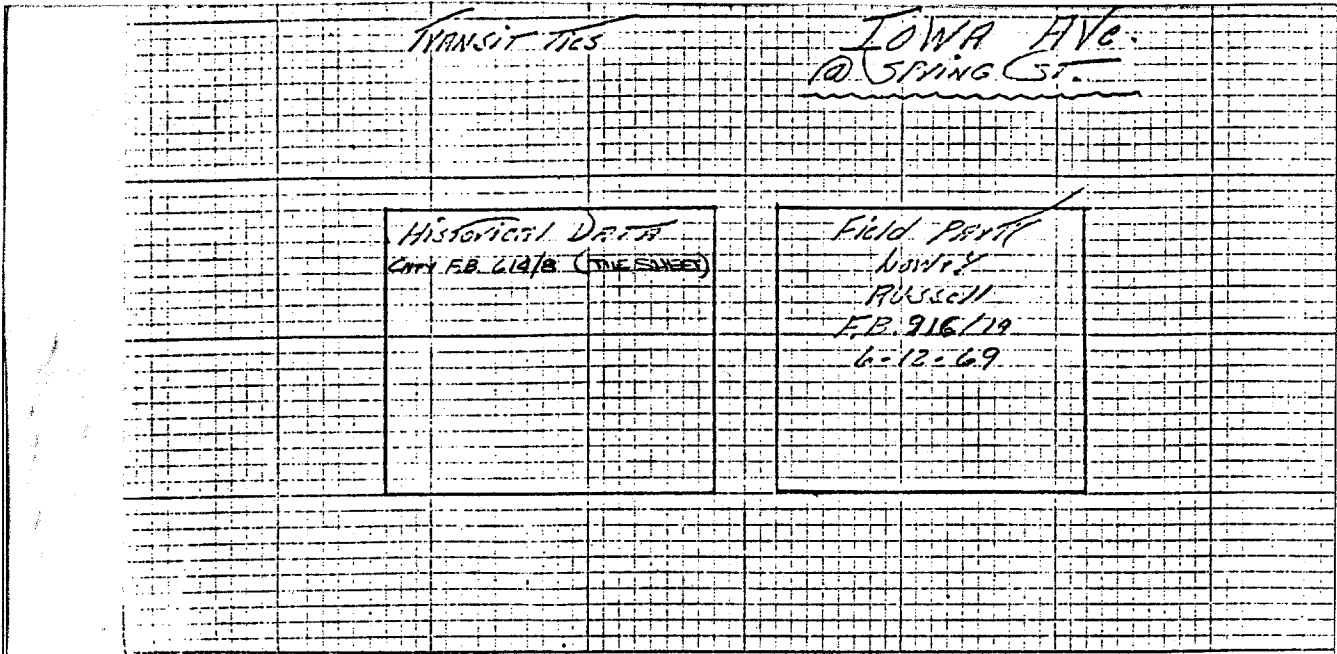 TRANSIT TIES
IOWA AVE.
@ SPRING ST.
Historical DATA
CNTY F.B. 614/8 (TIE SHEET)
Field PARTY
LOWRY
RUSSELL
F.B. 916/19
6-12-69